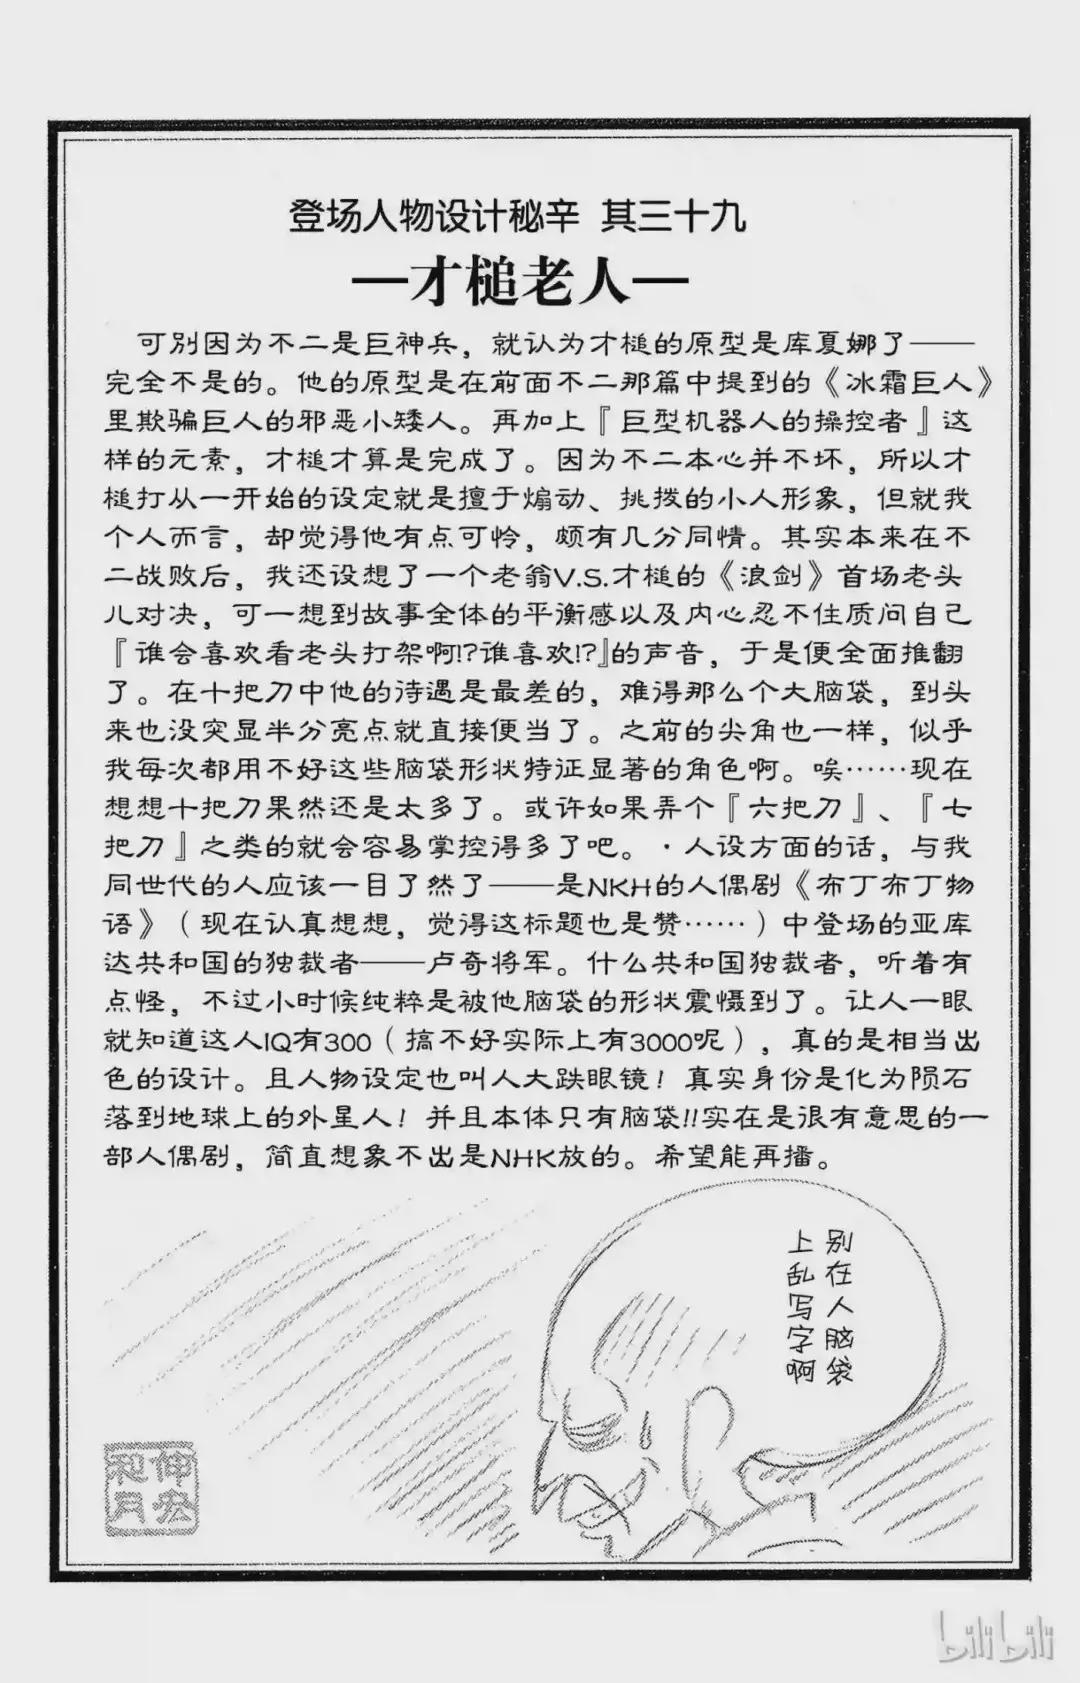 登场人物设计秘辛 其三十九
—才槌老人—
可别因为不二是巨神兵，就认为才槌的原型是库夏娜了——
完全不是的。他的原型是在前面不二那篇中提到的《冰霜巨人》
里欺骗巨人的邪恶小矮人。再加上『巨型机器人的操控者』这
样的元素，才槌才算是完成了。因为不二本心并不坏，所以才
槌打从一开始的设定就是擅于煽动、挑拨的小人形象，但就我
个人而言，却觉得他有点可怜，颇有几分同情。其实本来在不
二战败后，我还设想了一个老翁V.S.才槌的《浪剑》首场老头
儿对决，可一想到故事全体的平衡感以及内心忍不住质问自己
『谁会喜欢看老头打架啊!?谁喜欢!?』的声音，于是便全面推翻
了。在十把刀中他的待遇是最差的，难得那么个大脑袋，到头
来也没突显半分亮点就直接便当了。之前的尖角也一样，似乎
我每次都用不好这些脑袋形状特征显著的角色啊。唉……现在
想想十把刀果然还是太多了。或许如果弄个『六把刀』、『七
把刀』之类的就会容易掌控得多了吧。·人设方面的话，与我
同世代的人应该一目了然了——是NKH的人偶剧《布丁布丁物
语》（现在认真想想，觉得这标题也是赞……）中登场的亚库
达共和国的独裁者——卢奇将军。什么共和国独裁者，听着有
点怪，不过小时候纯粹是被他脑袋的形状震慑到了。让人一眼
就知道这人IQ有300（搞不好实际上有3000呢），真的是相当出
色的设计。且人物设定也叫人大跌眼镜！真实身份是化为陨石
落到地球上的外星人！并且本体只有脑袋!!实在是很有意思的一
部人偶剧，简直想象不出是NHK放的。希望能再播。
别在人脑袋
上乱写字啊
伸宏
和月
bilibili